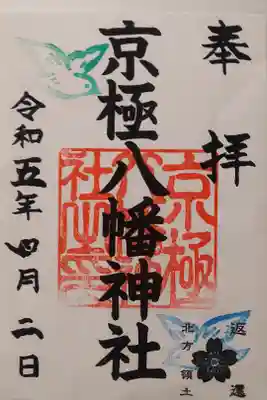 奉拝
京極八幡神社
令和五年四月二日
京極
社
返還
北方領土